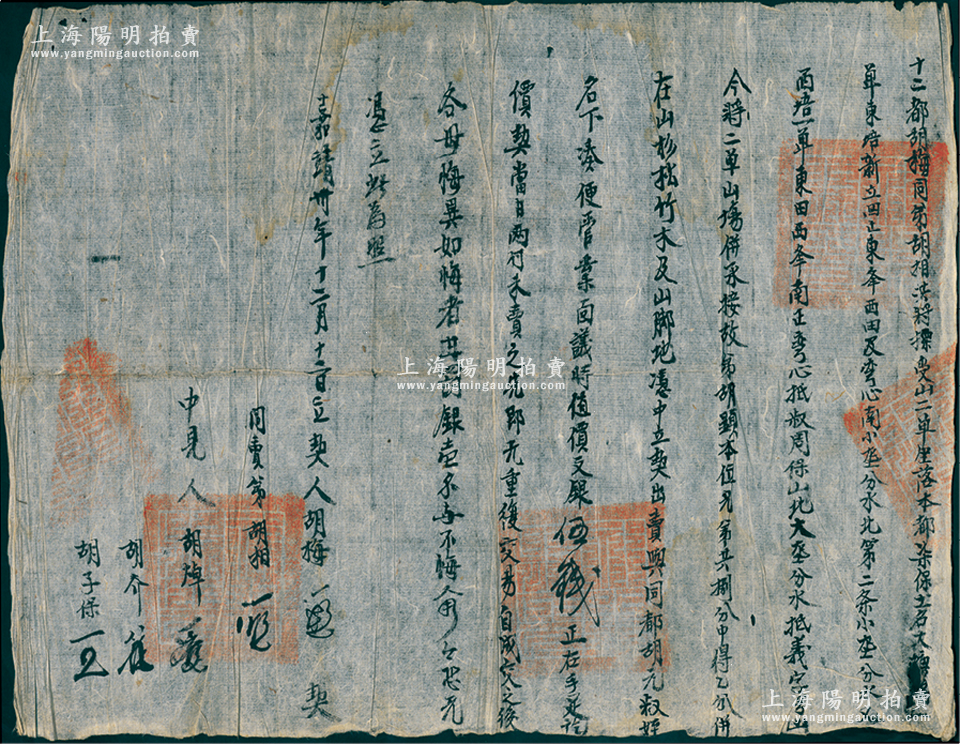 十二都胡梅同弟胡相共將摽受山二單坐落本都染保土名大
單東培新立四止東夆西田及彎心南小垄分水北第二条小垄分水
西培一單東田西夆南正彎心抵叔周保山北大垄分水抵義字山
今將二單山塲併承接故弟胡顕本位兄弟共捌分中得乙分併
在山杉松竹木及山脚地憑中立契出賣與同都胡九叔姪
名下凑便管業面議時值價文銀伍錢正在手足訖
價契當日兩付未賣之先即无重復交易自成交之後
各毋悔異如悔者甘罰銀壹不悔人用今恐无
憑立此為照
嘉靖卅年十二月十二日立契人胡梅 契
同賣弟胡相
中見人胡
胡介
胡子保
上海陽明拍賣
www.yangmingauction.com
上海陽明拍賣
www.yangmingauction.com
上海陽明拍賣
www.yangmingauction.com
上海陽明拍賣
www.yangmingauction.com